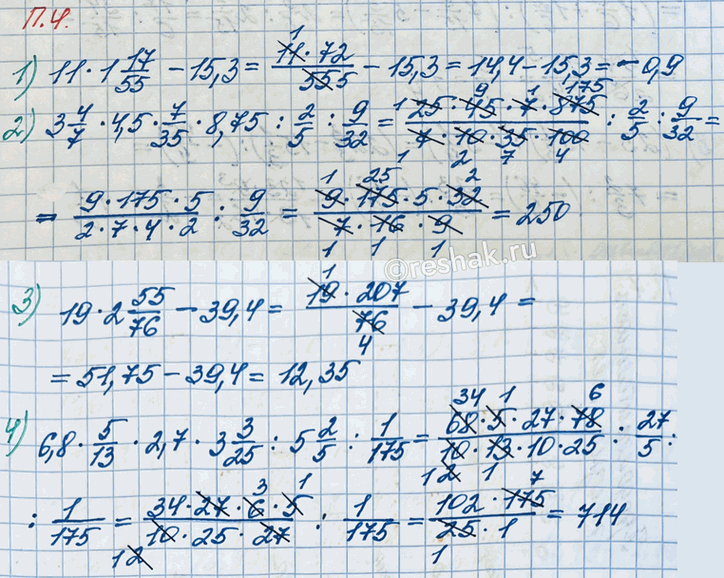 П.4.
1) 11 · 1 17/55 − 15,3 = 11 · 72 / 55 5 − 15,3 = 14,4 − 15,3 = −0,9
2) 3 4/7 · 4,5 · 7/35 · 8,75 : 2/5 : 9/32 = 25 · 45 · 7 · 875 / 7 · 10 · 35 · 100 : 2/5 : 9/32 =
1 9 1 175
1 2 7 4
= 9 · 175 · 5 / 2 · 7 · 4 · 2 : 9/32 = 9 · 175 · 5 · 32 / 7 · 16 · 9 = 250
1 25 2
1 1 1
©reshak.ru
3) 19 · 2 55/76 − 39,4 = 19 · 207 / 76 − 39,4 =
1
4
= 51,75 − 39,4 = 12,35
4) 6,8 · 5/13 · 2,7 · 3 3/25 : 5 2/5 : 1/175 = 68 · 5 · 27 · 78 / 10 · 13 · 10 · 25 : 27/5 :
34 1 6
1 2 1
: 1/175 = 34 · 27 · 6 · 5 / 10 · 25 · 27 : 1/175 = 102 · 175 / 25 · 1 = 714
3 1 7
1 2 1